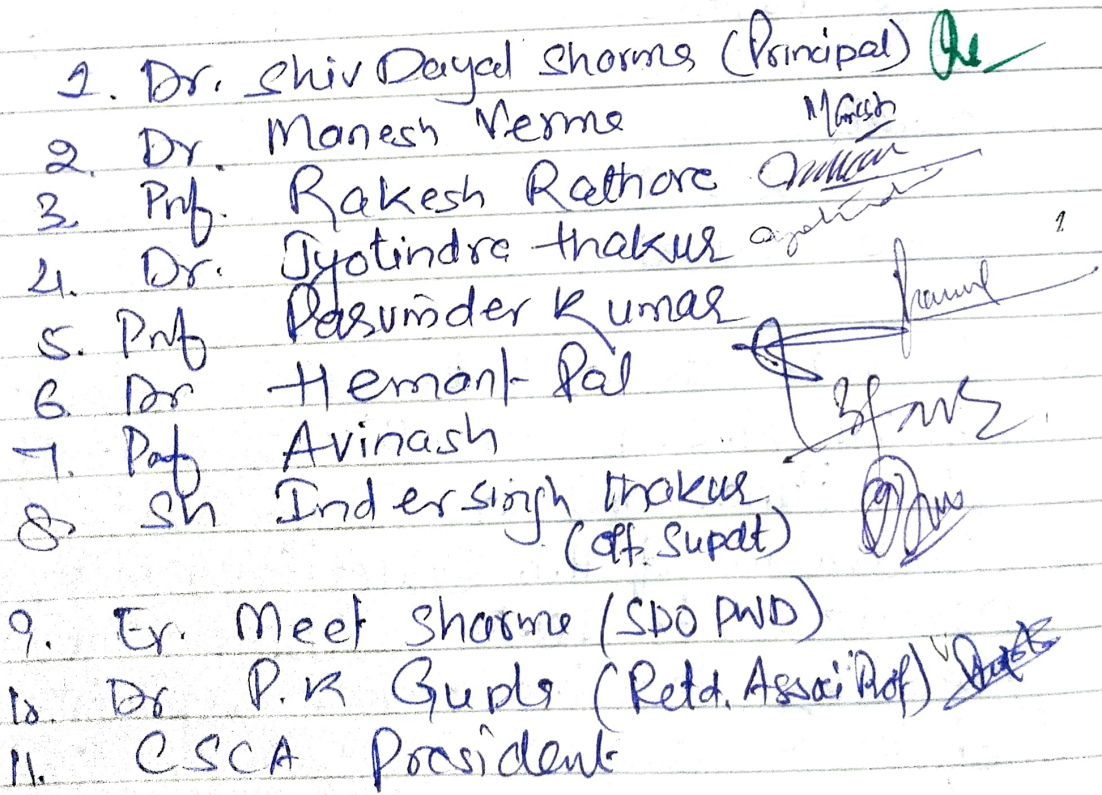 1. Dr. Shiv Dayal Sharma (Principal)
2. Dr. Manesh Verma Manesh
3. Prof. Rakesh Rathore
4. Dr. Jyotindra thakur
5. Prof Pasuminder Kumar
6. Dr Hemant Pal
7. Prof Avinash
8. Sh Inder singh thakur
(Off. Supdt)
9. Er. Meet Sharma (SDO PWD)
10. Dr P.K Gupta (Retd. Assoi Prof)
11. CSCA President